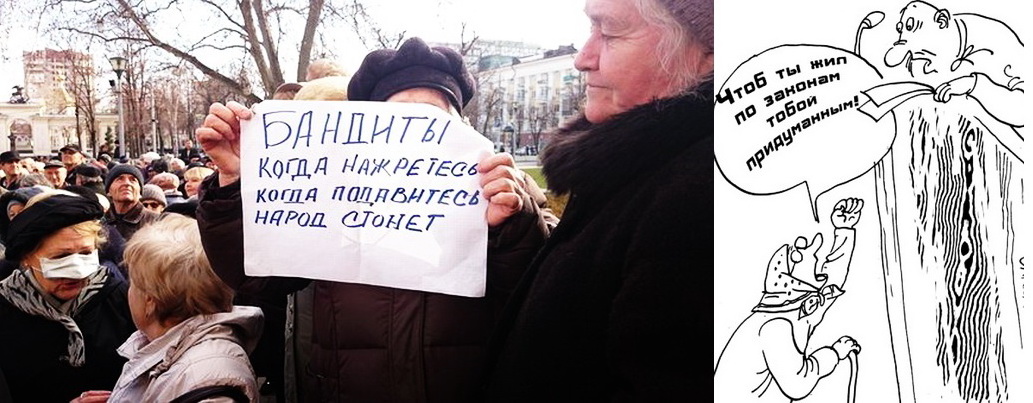 БАНДИТЫ
КОГДА НАЖРЕТЕСЬ
КОГДА ПОДАВИТЕСЬ
НАРОД СТОНЕТ
Чтоб ты жил
по законам
тобой
придуманным!